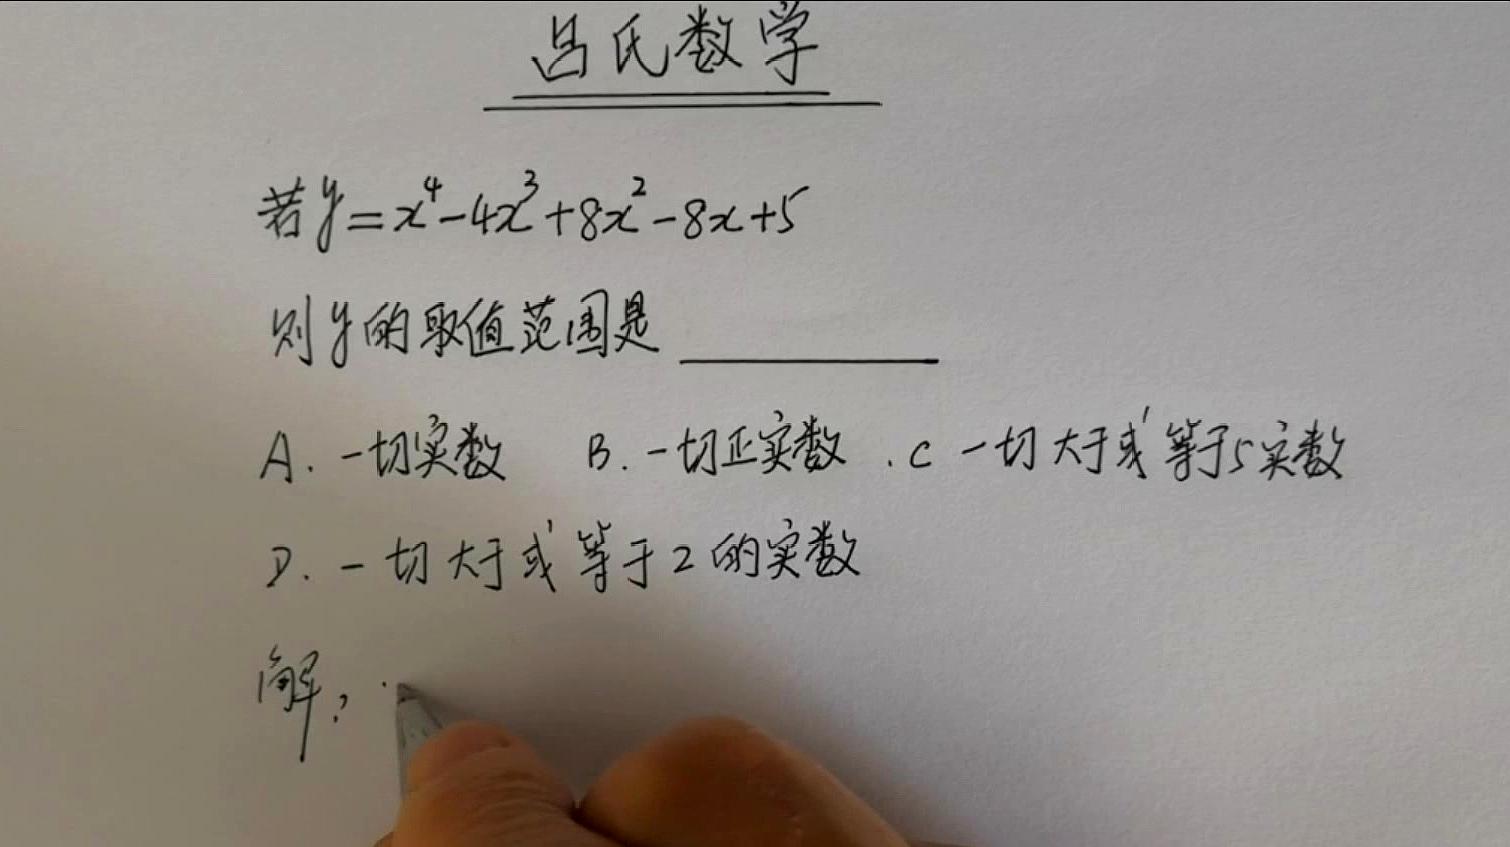 吕氏数学
若y=x⁴-4x³+8x²-8x+5
则y的取值范围是
A. 一切实数 B. 一切正实数 . C 一切大于或等于5实数
D. 一切大于或等于2的实数
解: